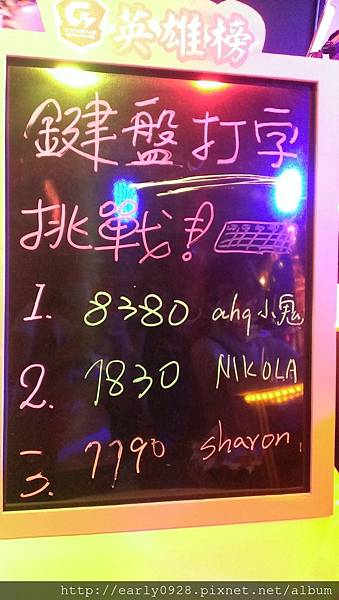 英雄榜
鍵盤打字
挑戰!
1. 8380 ahq小鬼
2. 7830 NIKOLA
3. 7790 sharon
http://early0928.pixnet.net/album